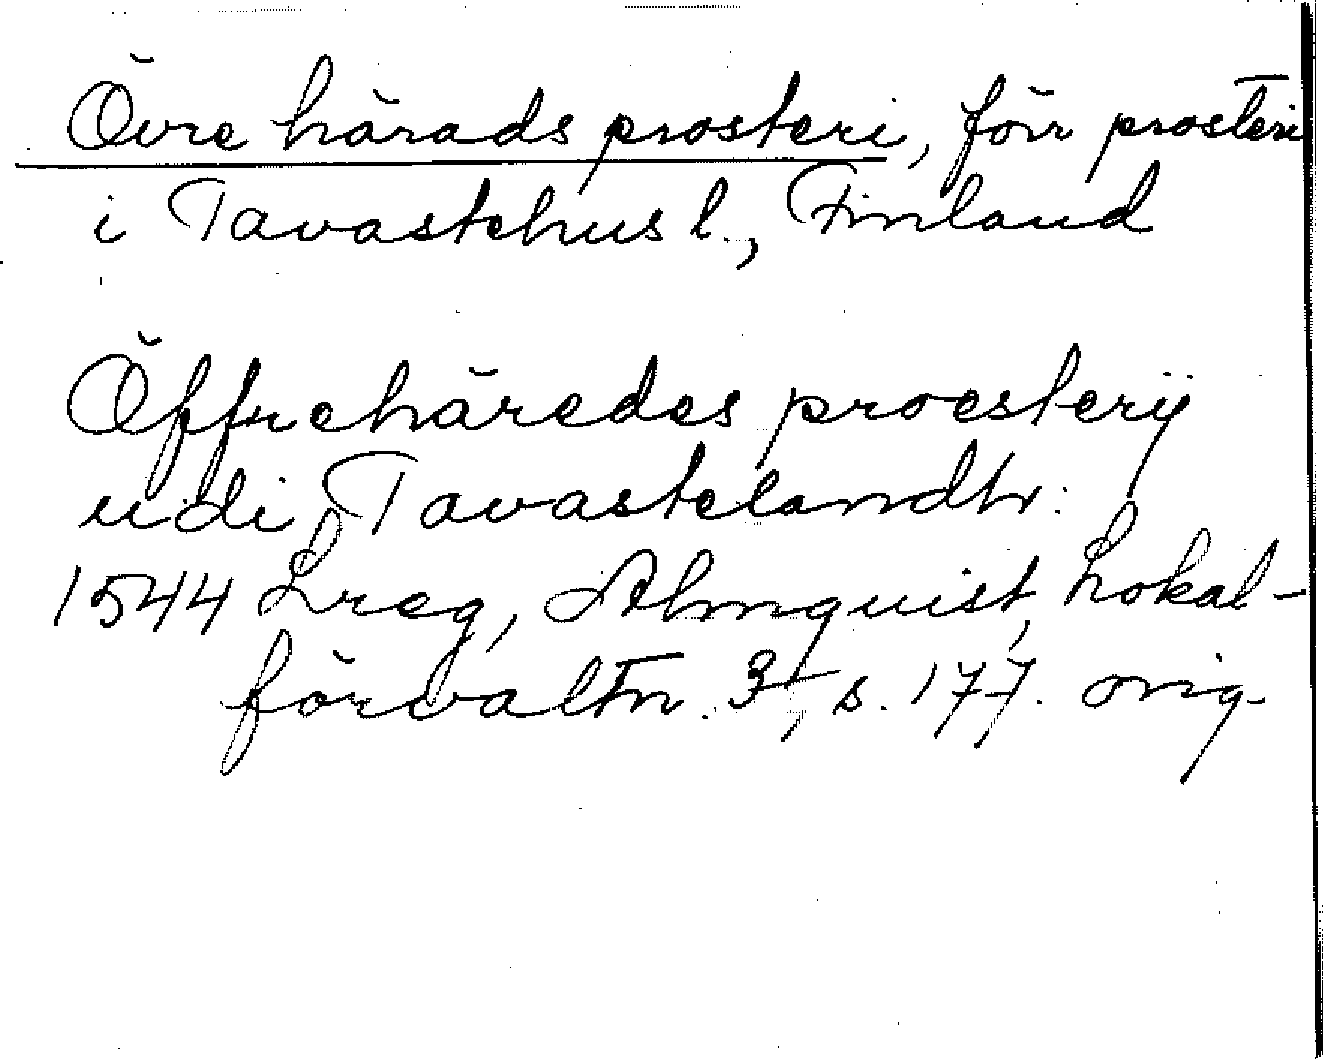 Övre härads prosteri, förr prosteri
i Tavastehus l., Finland
Öffrehäredes proesterij
udi Tavastelandh:
1544 Lreg, Almquist, Lokal-
förvaltn. 3, s. 177. orig.